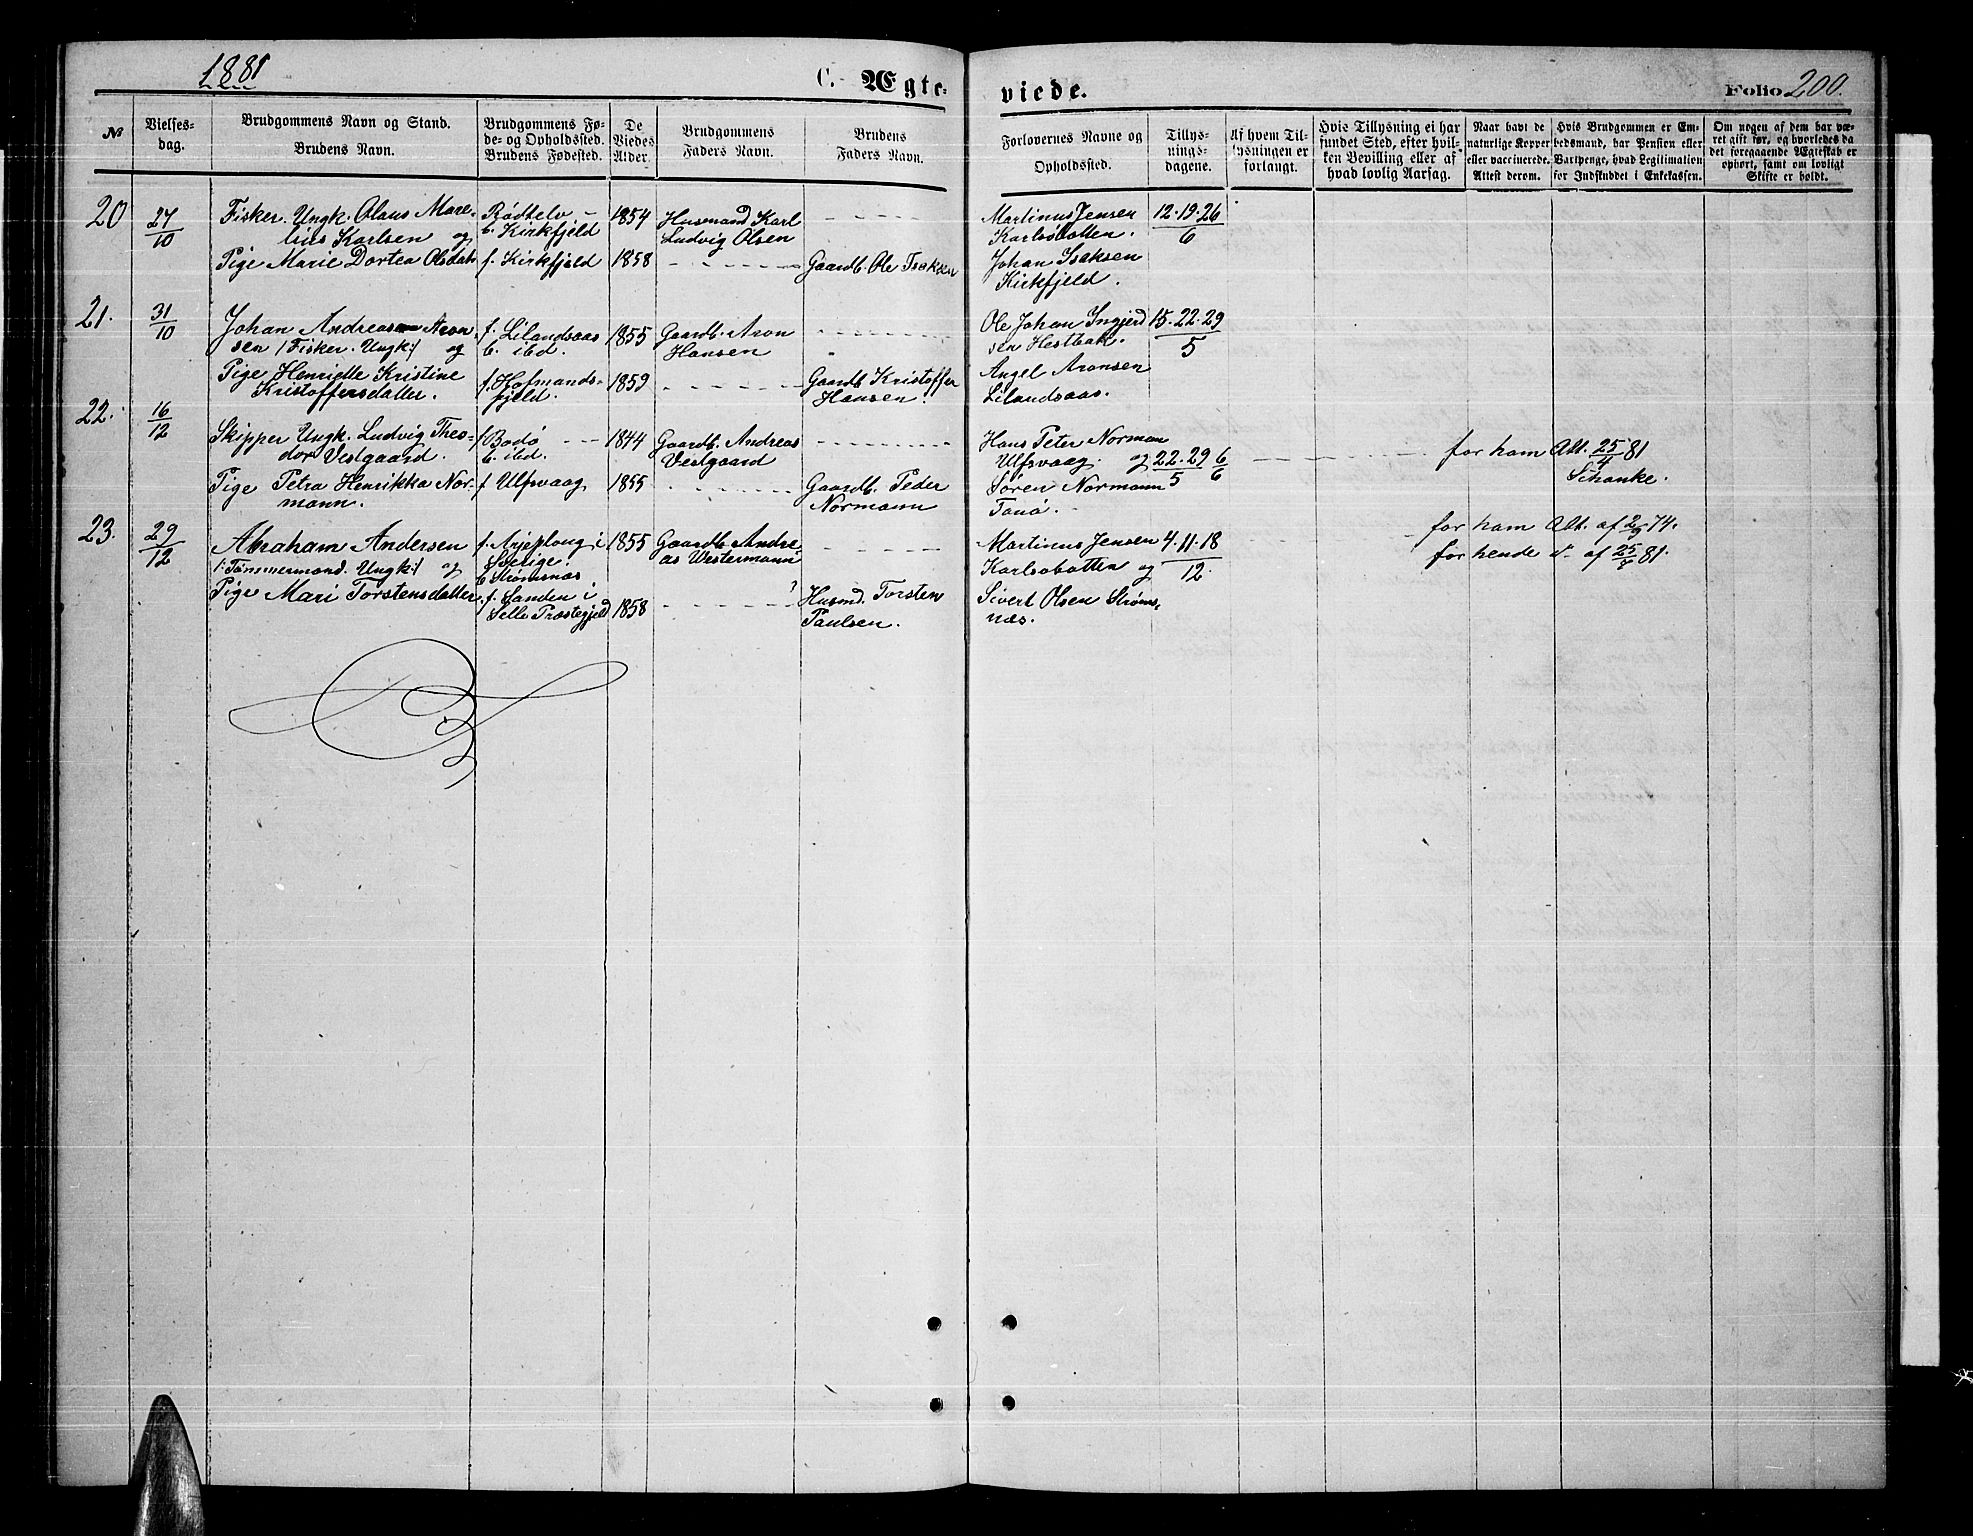 1881
C. Ægte-
viede.
Folio 200.
№
Vielses-
dag.
Brudgommens Navn og Stand.
Brudens Navn.
Brudgommens Fø-
de- og Opholdssted.
Brudens Fødested.
De
Viedes
Alder.
Brudgommens
Faders Navn.
Brudens
Faders Navn.
Forlovernes Navne og
Opholdssted.
Tillys-
nings-
dagene.
Af hvem Til-
lysningen er
forlangt.
Hvis Tillysning ei har
fundet Sted, efter hvil-
ken Bevilling eller af
hvad lovlig Aarsag.
Naar havt de
naturlige Kopper
eller vaccinerede.
Attest derom.
Hvis Brudgommen er Em-
bedsmand, har Pension eller
Vartpenge, hvad Legitimation
for Indskuddet i Enkekassen.
Om nogen af dem har væ-
ret gift før, og hvorledes da
det foregaaende Ægteskab er
ophørt, samt om lovligt
Skifte er holdt.
20
27/10
Fisker. Ungk. Olaus Mare-
lius Karlsen og
Pige Marie Dortea Olsdatr
b. Kirkfjeld
f. Kirkfjeld
1854
1858
Husmand Karl
Ludvig Olsen
Gaardb. Ole Isaksen
Martinus Jensen
Karlsobotten.
Johan Isaksen
Kirkfjeld.
12. 19. 26
6
21.
31/10
Johan Andreas Aron
sen /: Fisker. Ungk:/ og
Pige Henriette Kristine
Kristoffersdatter.
f. Lilandsaas
b. ibd.
f. Hofmands-
fjeld.
1855
1859
Gaardb. Aron
Hansen
Gaardb Kristoffer
Hansen.
Ole Johan Ingjerd
sen Hestbak.
Angel Aronsen
Lilandsaas.
15. 22. 29
5
22.
16/12
Skipper Ungk. Ludvig Theo-
dor Vestgaard.
Pige Petra Henrikka Nor-
mann.
f Bodø
b. ibd.
f Ulfsvaag
1844
1855
Gaardb. Andreas
Vestgaard
Gaardb. Peder
Normann
Hans Peter Norman
Ulfsvaag. og
Søren Normann
Tanø.
22. 29 6
5 6
for ham Att. 25/4 81
Schanke.
23.
29/12
Abraham Andersen
/: Tømmermand. Ungk:/ og
Pige Mari Torstensdatter
f. Arjeploug i
Sverige.
b Strømsnæs
f. Sanden i
Selle Præstegjeld
1855
1858
Gaardb Andre
as Westermann
Husmd. Torsten
Paulsen.
Martinus Jensen
Karlsobotten og
Sivert Olsen Strøms,
næs.
4. 11. 18
12.
for ham Att. af 2/9 74.
for hende d. af 25/7 81.